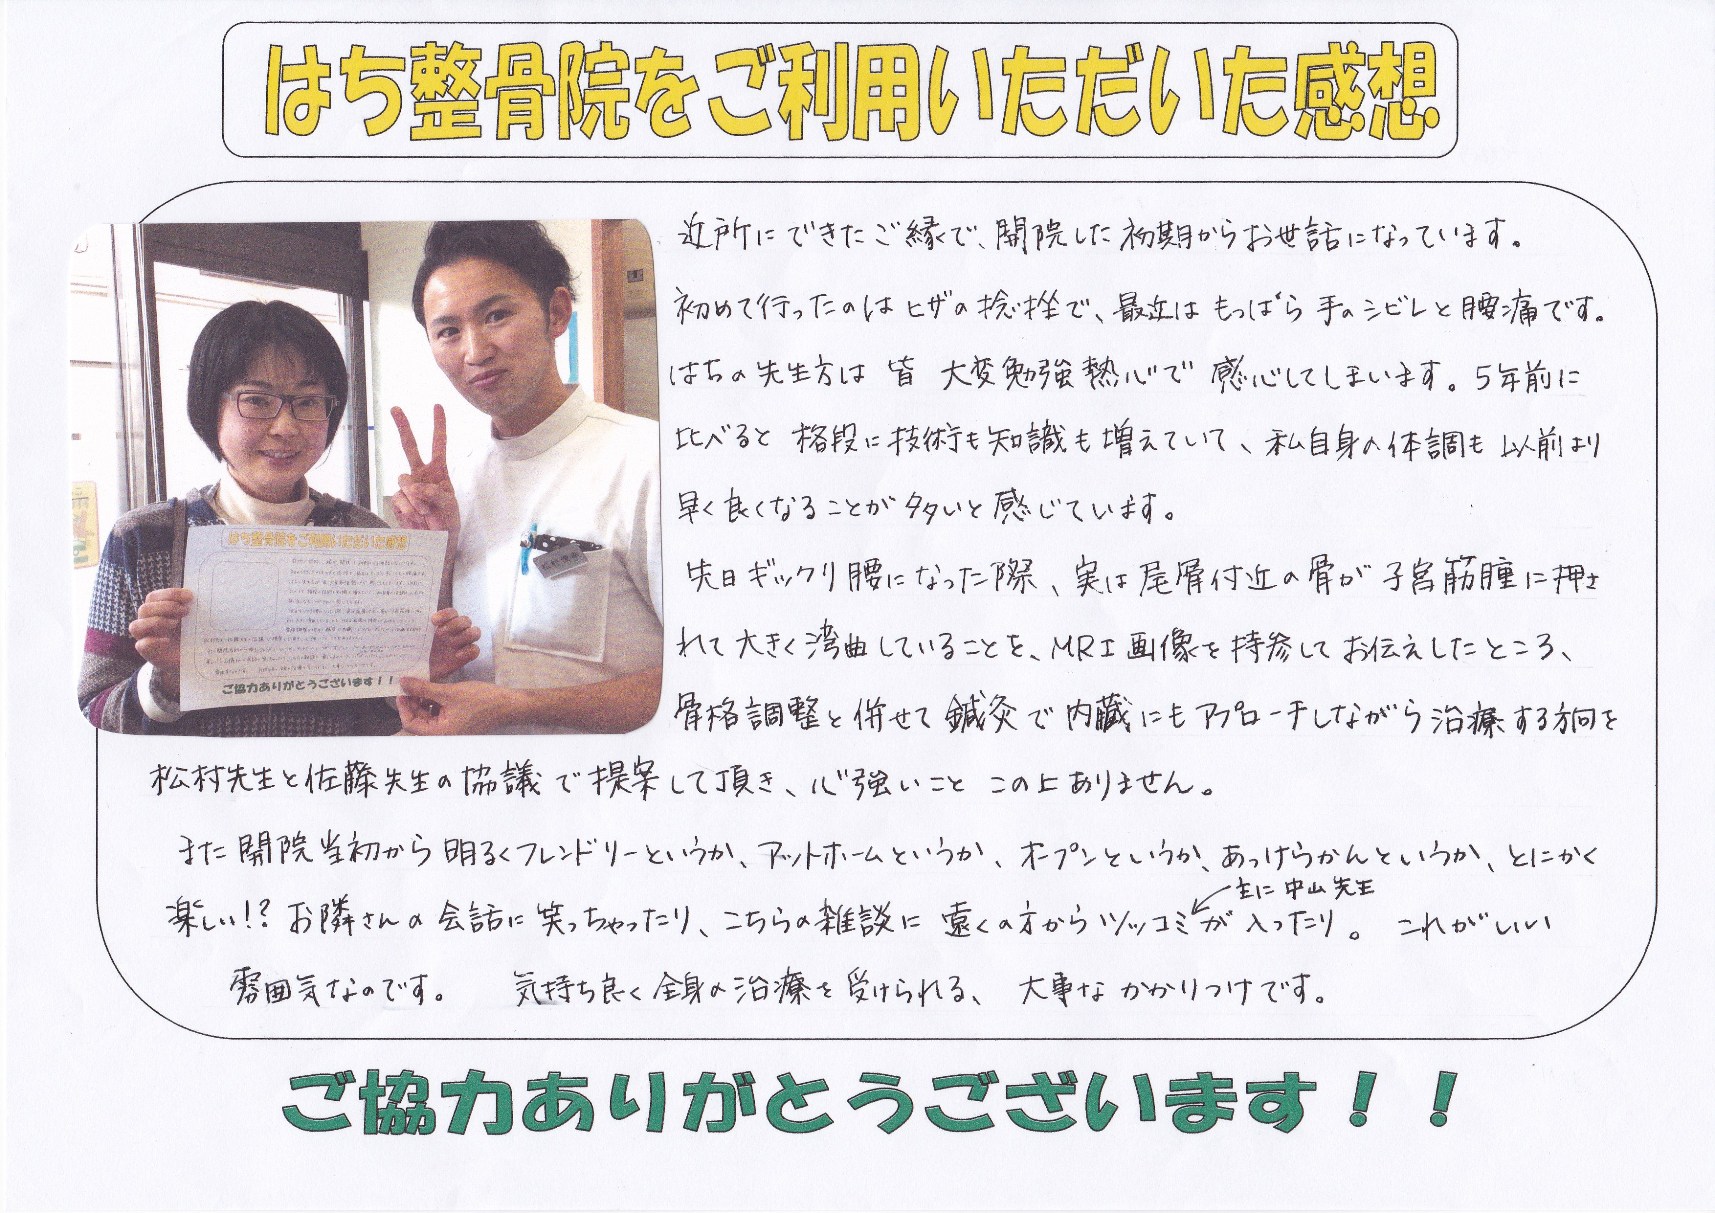 はち整骨院をご利用いただいた感想
近所にできたご縁で、開院した初期からお世話になっています。
初めて行ったのはヒザの捻挫で、最近はもっぱら手のシビレと腰痛です。
はちの先生方は皆大変勉強熱心で感心してしまいます。5年前に
比べると格段に技術も知識も増えていて、私自身の体調も以前より
早く良くなることが多いと感じています。
先日ギックリ腰になった際、実は尾骨付近の骨が子宮筋腫に押さ
れて大きく湾曲していることを、MRI画像を持参してお伝えしたところ、
骨格調整と併せて鍼灸で内臓にもアプローチしながら治療する方向を
松村先生と佐藤先生の協議で提案して頂き、心強いことこの上ありません。
また開院当初から明るくフレンドリーというか、アットホームというか、オープンというか、あっけらかんというか、とにかく
主に中山先生
楽しい!? お隣さんの会話に笑っちゃったり、こちらの雑談に遠くの方からツッコミが入ったり。これがいい
雰囲気なのです。 気持ち良く全身の治療を受けられる、大事なかかりつけです。
はち整骨院をご利用いただいた感想
ご協力ありがとうございます！！
ご協力ありがとうございます！！